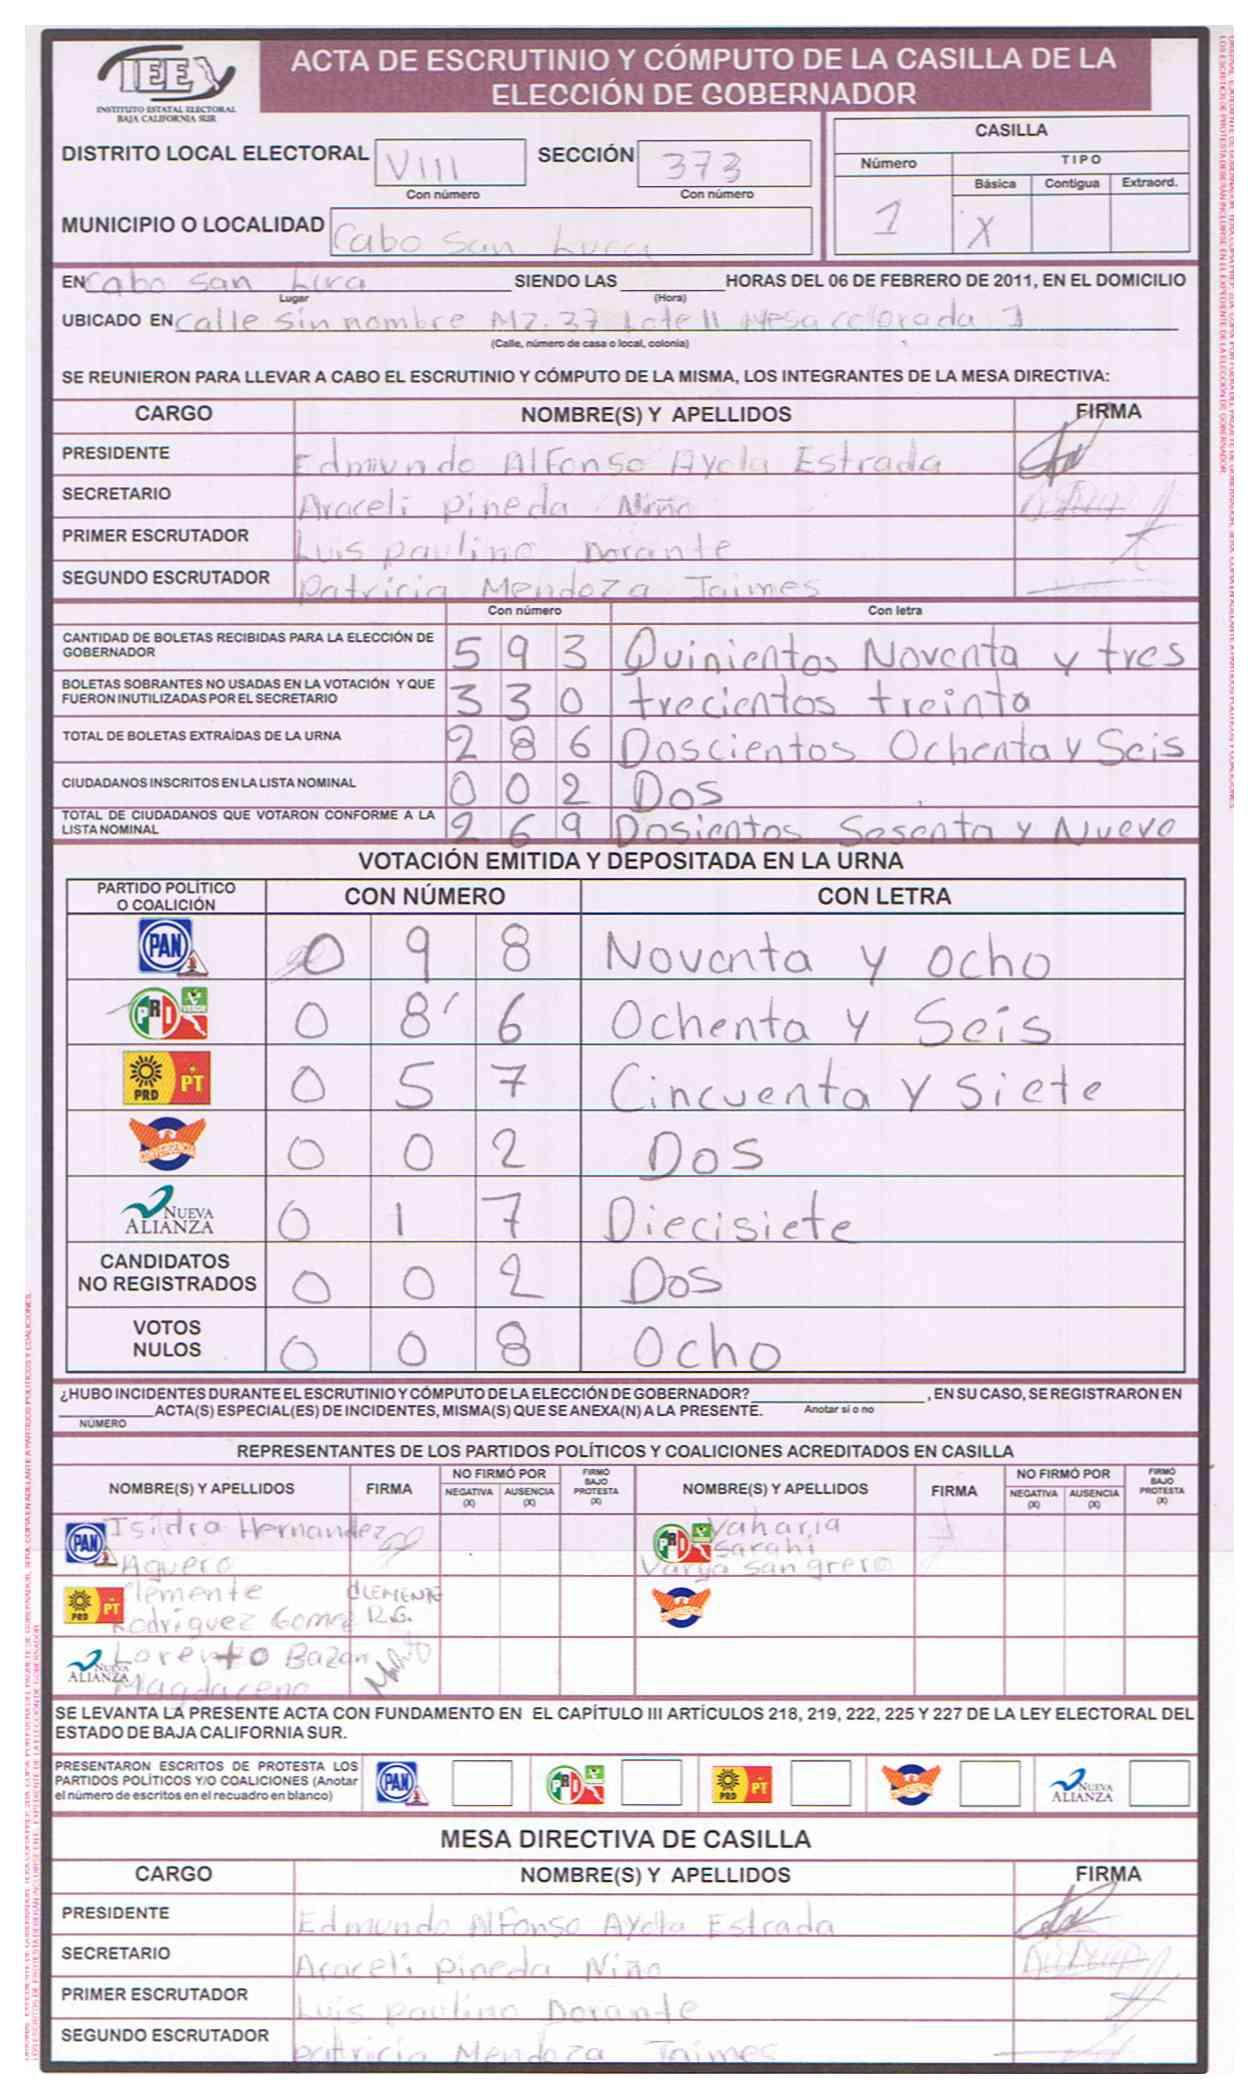 IEE
INSTITUTO ESTATAL ELECTORAL
BAJA CALIFORNIA SUR
ACTA DE ESCRUTINIO Y CÓMPUTO DE LA CASILLA DE LA
ELECCIÓN DE GOBERNADOR
DISTRITO LOCAL ELECTORAL VIII SECCIÓN 373
Con número Con número
MUNICIPIO O LOCALIDAD Cabo San Luca
CASILLA
Número TIPO
Básica Contigua Extraord.
1 X
EN Cabo San Luca SIENDO LAS HORAS DEL 06 DE FEBRERO DE 2011, EN EL DOMICILIO
Lugar (Hora)
UBICADO EN Calle sin nombre MZ. 37 Lote 11 Mesa colorada 1
(Calle, número de casa o local, colonia)
SE REUNIERON PARA LLEVAR A CABO EL ESCRUTINIO Y CÓMPUTO DE LA MISMA, LOS INTEGRANTES DE LA MESA DIRECTIVA:
CARGO NOMBRE(S) Y APELLIDOS FIRMA
PRESIDENTE Edmundo Alfonso Ayala Estrada
SECRETARIO Araceli Pineda Niño
PRIMER ESCRUTADOR Luis paulino Dorante
SEGUNDO ESCRUTADOR Patricia Mendoza Jaimes
Con número Con letra
CANTIDAD DE BOLETAS RECIBIDAS PARA LA ELECCIÓN DE
GOBERNADOR 5 9 3 Quinientos Noventa y tres
BOLETAS SOBRANTES NO USADAS EN LA VOTACIÓN Y QUE
FUERON INUTILIZADAS POR EL SECRETARIO 3 3 0 trecientos treinta
TOTAL DE BOLETAS EXTRAÍDAS DE LA URNA 2 8 6 Doscientos Ochenta y Seis
CIUDADANOS INSCRITOS EN LA LISTA NOMINAL 0 0 2 Dos
TOTAL DE CIUDADANOS QUE VOTARON CONFORME A LA
LISTA NOMINAL 2 6 9 Dosientos Sesenta y Nueve
VOTACIÓN EMITIDA Y DEPOSITADA EN LA URNA
PARTIDO POLÍTICO
O COALICIÓN CON NÚMERO CON LETRA
PAN 0 9 8 Noventa y ocho
PRI VERDE 0 8 6 Ochenta y Seis
PRD PT 0 5 7 Cincuenta y Siete
CONVERGENCIA 0 0 2 Dos
NUEVA ALIANZA 0 1 7 Diecisiete
CANDIDATOS
NO REGISTRADOS 0 0 2 Dos
VOTOS
NULOS 0 0 8 Ocho
¿HUBO INCIDENTES DURANTE EL ESCRUTINIO Y CÓMPUTO DE LA ELECCIÓN DE GOBERNADOR? , EN SU CASO, SE REGISTRARON EN
ACTA(S) ESPECIAL(ES) DE INCIDENTES, MISMA(S) QUE SE ANEXA(N) A LA PRESENTE. Anotar si o no
NÚMERO
REPRESENTANTES DE LOS PARTIDOS POLÍTICOS Y COALICIONES ACREDITADOS EN CASILLA
NOMBRE(S) Y APELLIDOS FIRMA NO FIRMÓ POR NEGATIVA (X) AUSENCIA (X) FIRMÓ BAJO PROTESTA (X) NOMBRE(S) Y APELLIDOS FIRMA NO FIRMÓ POR NEGATIVA (X) AUSENCIA (X) FIRMÓ BAJO PROTESTA (X)
PAN Isidra Hernandez
Aguero
PRI Sarahi
PRD PT Clemente CLEMENTE
Rodriguez Gomez R.G.
NUEVA ALIANZA Lorento Bazan
Magdaceno
SE LEVANTA LA PRESENTE ACTA CON FUNDAMENTO EN EL CAPÍTULO III ARTÍCULOS 218, 219, 222, 225 Y 227 DE LA LEY ELECTORAL DEL
ESTADO DE BAJA CALIFORNIA SUR.
PRESENTARON ESCRITOS DE PROTESTA LOS
PARTIDOS POLÍTICOS Y/O COALICIONES (Anotar
el número de escritos en el recuadro en blanco)
PAN PRI PRD PT NUEVA ALIANZA
MESA DIRECTIVA DE CASILLA
CARGO NOMBRE(S) Y APELLIDOS FIRMA
PRESIDENTE Edmundo Alfonso Ayala Estrada
SECRETARIO Araceli Pineda Niño
PRIMER ESCRUTADOR Luis Paulino Dorante
SEGUNDO ESCRUTADOR patricia Mendoza Jaimes